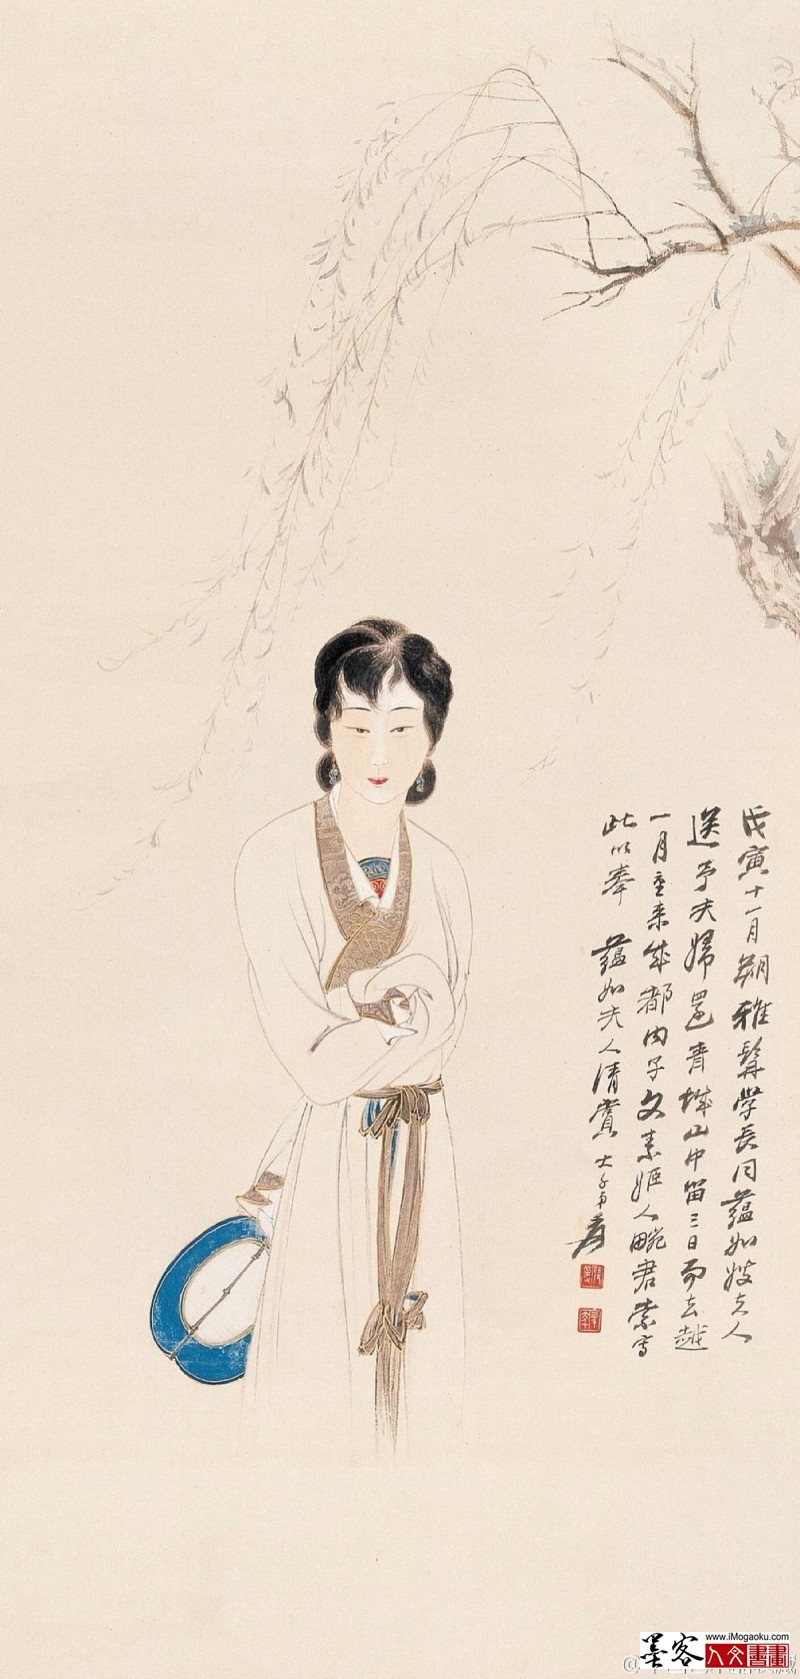 戊寅十一月朔雅髯学長同蘊如嫂夫人
送予夫婦還青城山中留三日而去越
一月重来成都内子文素姬人畹君索写
此以奉 蘊如夫人清賞 大千弟爰
www.iMogaoku.com
墨客人文書畫